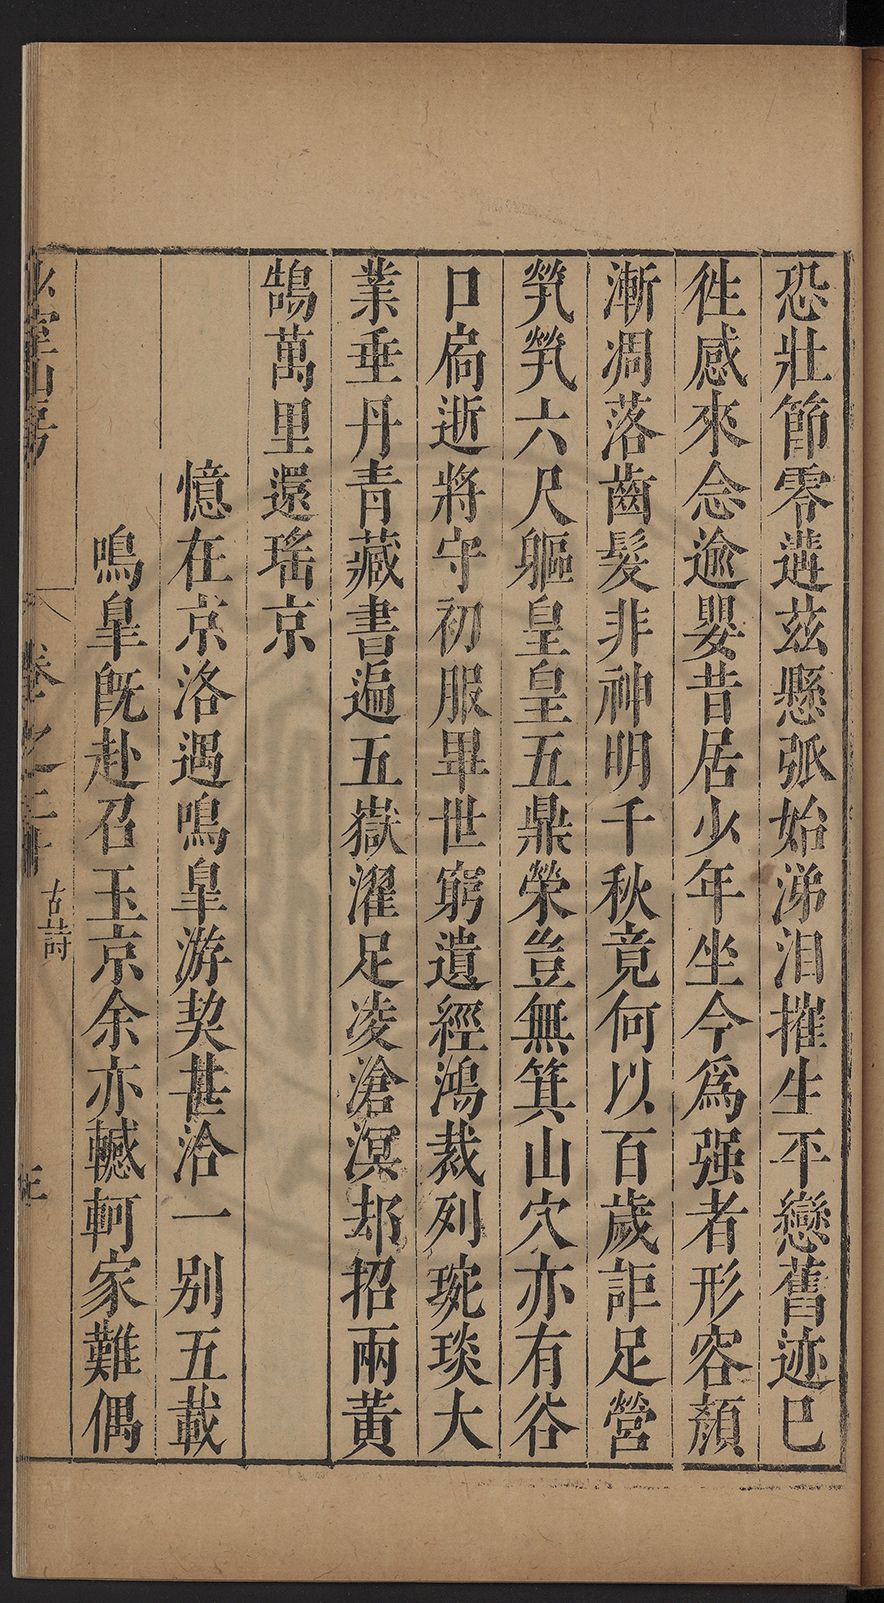 恐壯節零遘茲懸弧始涕泪摧生平戀舊迹巳
徃感來念逾嬰昔居少年坐今爲强者形容顏
漸凋落齒髮非神明千秋竟何以百歲詎足營
煢煢六尺軀皇皇五鼎榮豈無箕山穴亦有谷
口扃逝將守初服畢世窮遺經鴻裁列琬琰大
業垂丹青藏書遍五嶽濯足凌滄溟却招兩黃
鵠萬里還瑤京
憶在京洛遇鳴皐游契甚洽一别五載
鳴皐旣赴召玉京余亦轗軻家難偶
山房
卷之二十
古詩